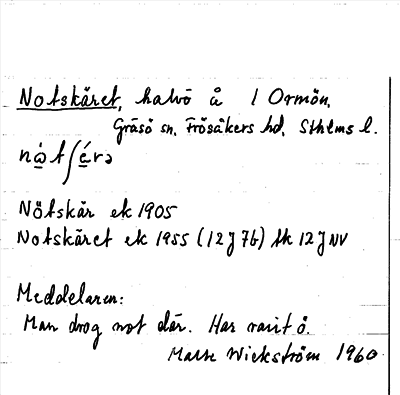 Notskäret, halvö å / Ormön,
Gräsö sn, Frösåkers hd, Sthlms l.
nṓtʃǟrə
Nötskär ek 1905
Notskäret ek 1955 (12J7b) tk 12JNV
Meddelaren:
Man drog not där. Har varit ö.
Malte Wickström 1960